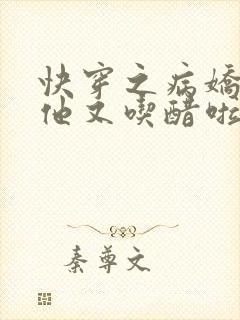 快穿之病嬌
他又喫醋啦
秦尊文